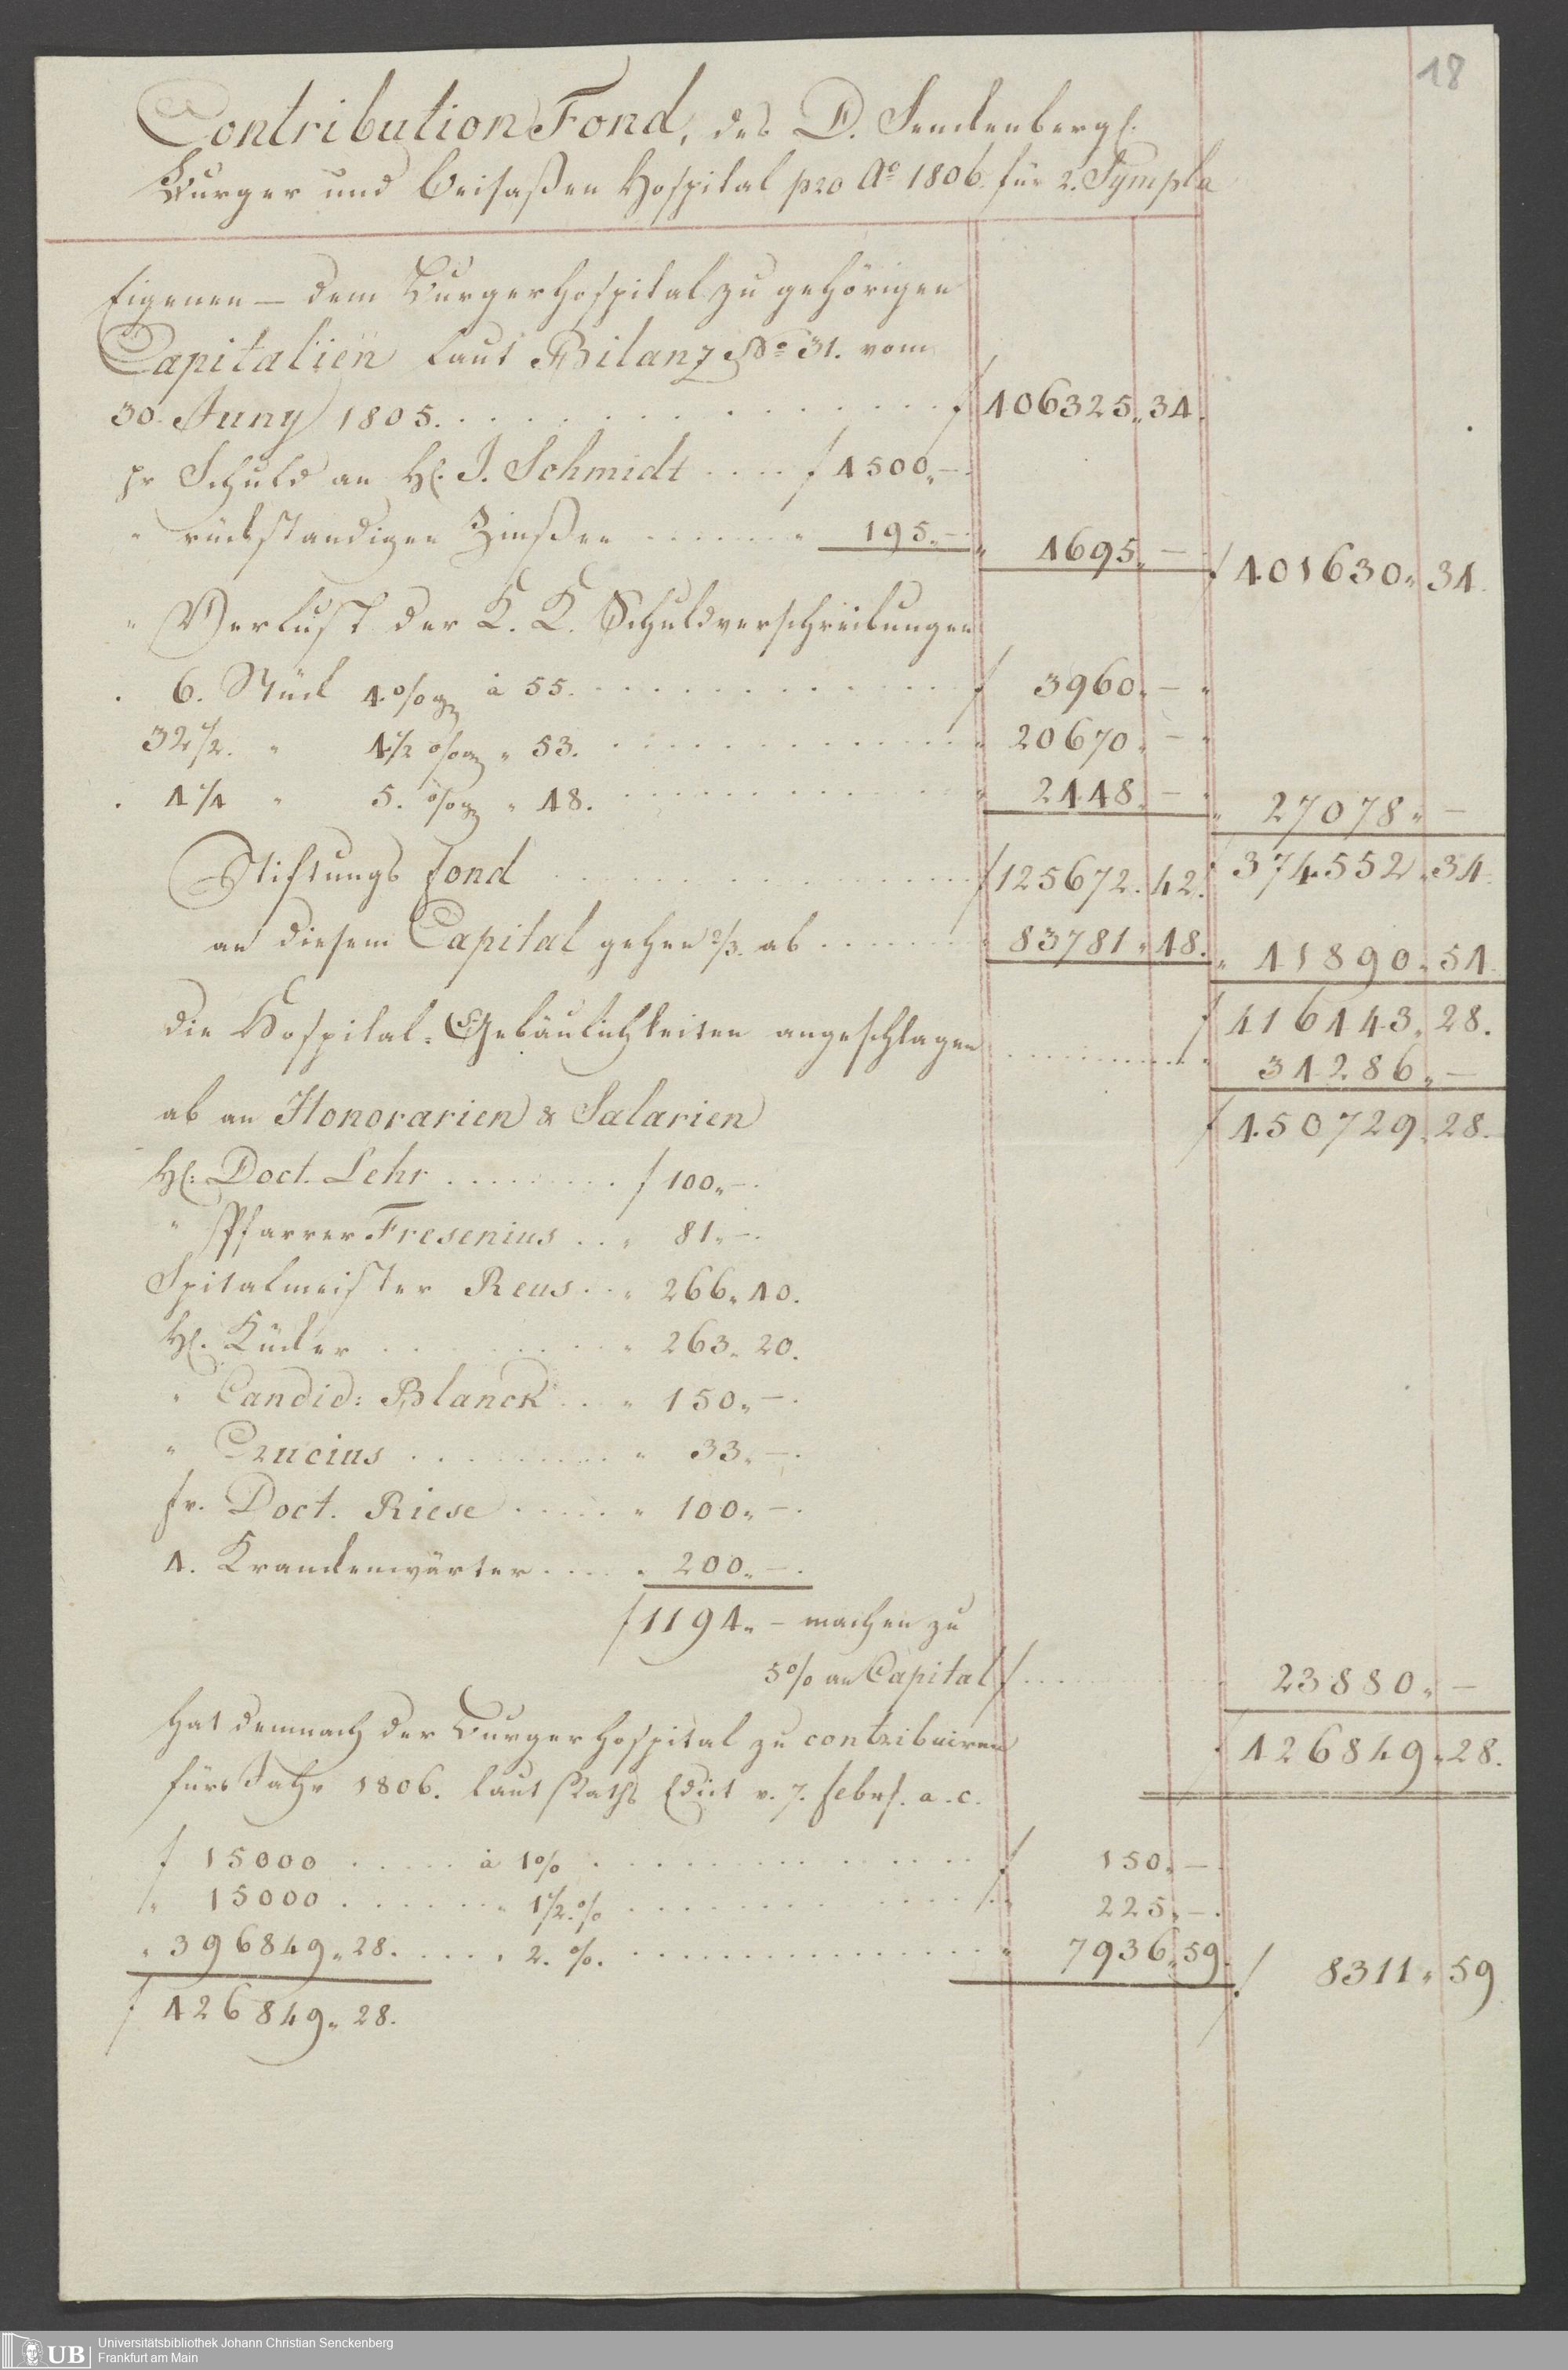 18
Contribution Fond, des D. Senckenbergl.
Burger und Beisaßen Hospital pro Aº 1806. für 2. Sympla
Eigenen — dem Burgerhospital zu gehörigen
Capitalien laut Bilanz Nº 31. vom
30. Juny 1805. . . . . . . . . . . f 406325 „ 34.
pr Schuld an H. J. Schmidt . . . . f 4500 „ —.
" rückständigen Zinßen . . . . . . " 195 „ —. " 4695 „ — f 401630 „ 34.
" Verlust der K. K. Schuldverschreibungen
. 6. Stück 4. % à 55. . . . . . . . . f 3960 „ — "
32 1/2. " 4 1/2 % " 53. . . . . . . . . " 20670 „ — "
. 4 1/4 " 5. % " 48. . . . . . . . . " 2448 „ — " " 27078 „ —
f 374552 „ 34.
Stiftungs fond . . . . . . . . . f 125672 . 42.
an diesem Capital gehen 2/3. ab . . . . . . " 83781 „ 48. " 41890 „ 54.
f 416443 „ 28.
die Hospital-Gebäulichkeiten angeschlagen . . . . . . . " 34286 „ —
f 450729 „ 28.
ab an Honorarien & Salarien
H: Doct. Lehr . . . . . . . . f 100 „ —.
" Pfarrer Fresenius . . " 81 „ —.
Spitalmeister Reus . . " 266 „ 40.
H. Küchler . . . . . . . " 263 „ 20.
" Candid: Blanck . . " 150 „ —.
" Crucius . . . . . . . . " 33 „ —.
fr. Doct. Riese . . . . . " 100 „ —.
4. Kranckenwärter . . . . " 200 „ —.
f 1194 „ — machen zu
5 % an Capital f . . . . . . . 23880 „ —
f 426849 „ 28.
hat demnach der Burgerhospital zu contribuiren
fürs Jahr 1806. laut Raths Edict v. 7. febrl. a. c.
f 15000 . . . . . à 1% . . . . . . . . . f 150 „ —.
" 15000 . . . . . . " 1 1/2. % . . . . . . . . . " 225 „ —.
" 396849 „ 28. . . . . " 2. %. . . . . . . . . . " 7936 „ 59. f 8311 „ 59
f 426849 „ 28.
UB
Universitätsbibliothek Johann Christian Senckenberg
Frankfurt am Main